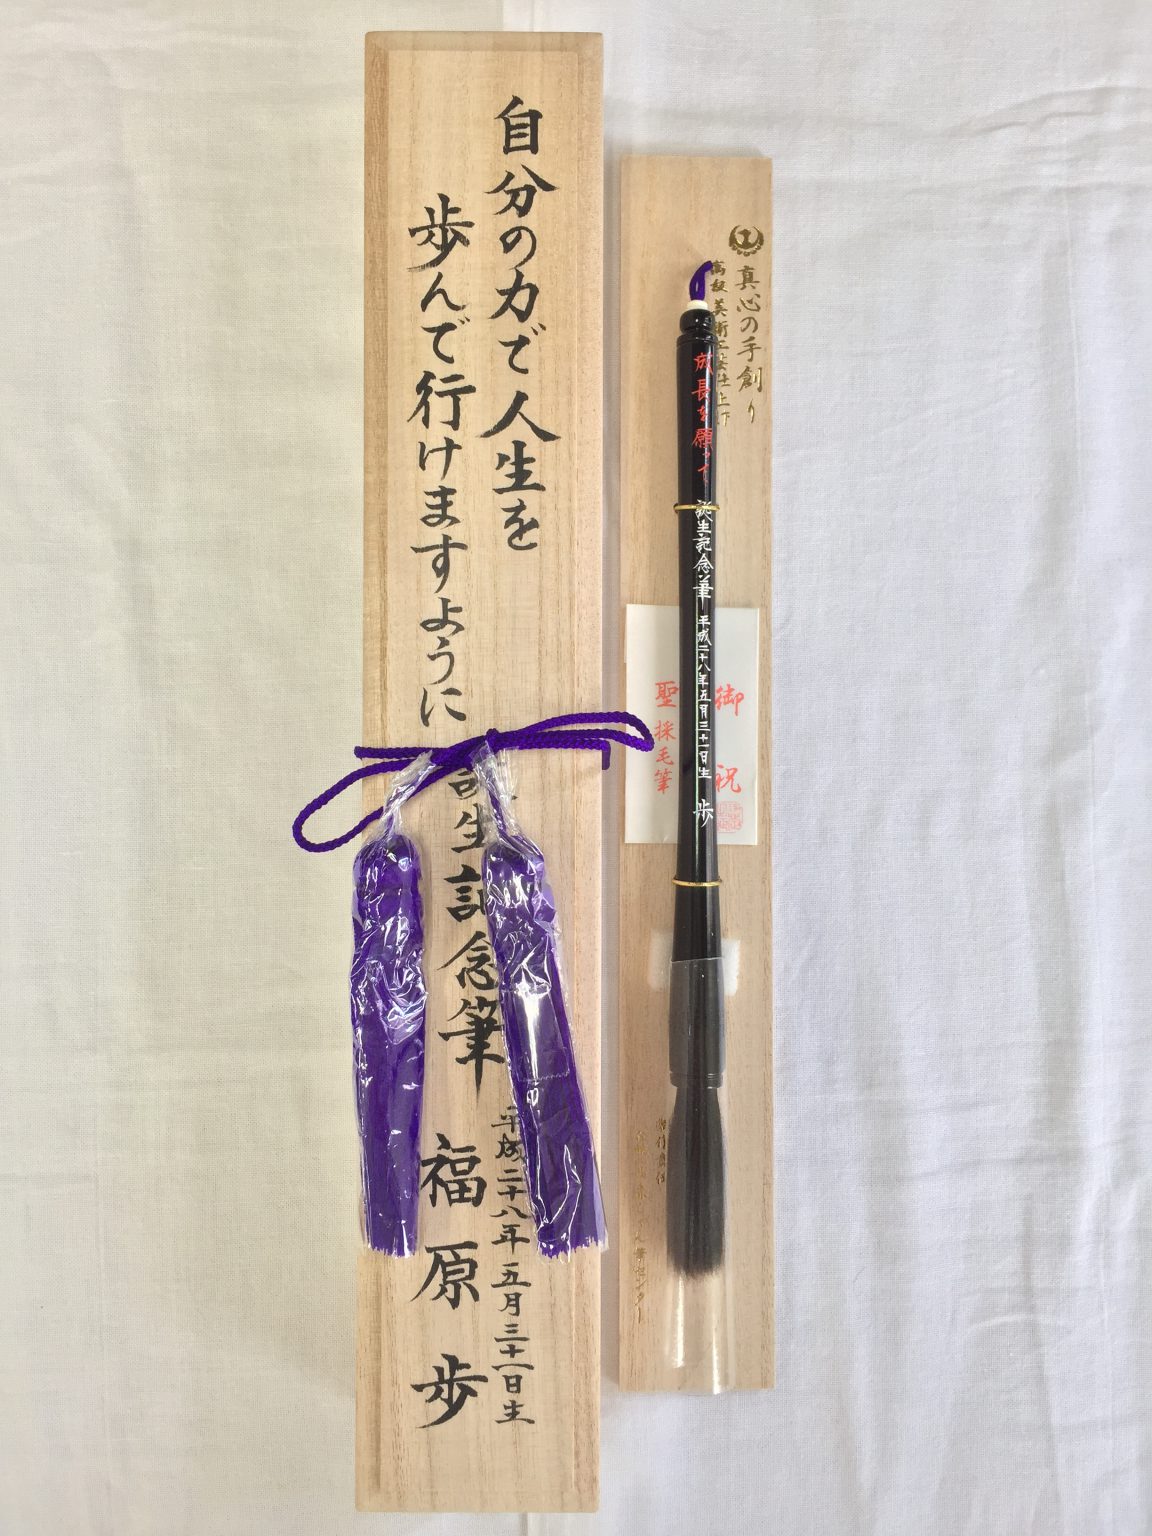 自分の力で人生を
歩んで行けますように
誕生記念筆
平成二十八年五月三十一日生
福原歩
真心の手創り
高級美術工芸仕上げ
成長を願って
誕生記念筆 平成二十八年五月三十一日生 歩
御祝
聖採毛筆
製作責任
筆センター